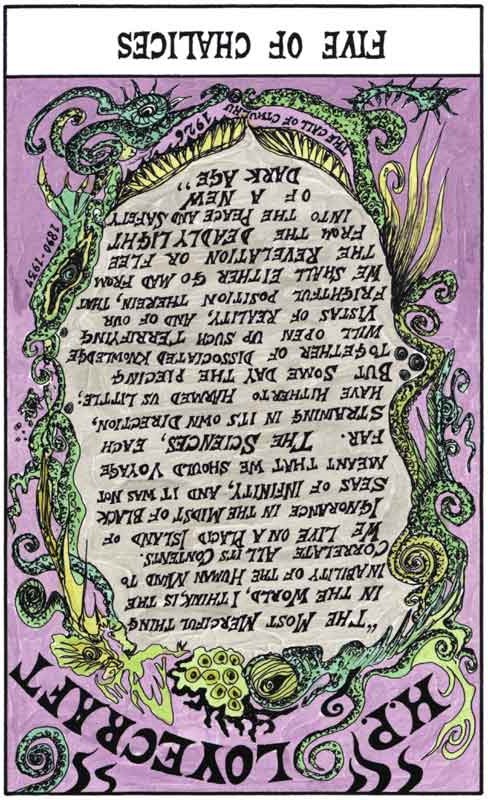 H.P. LOVECRAFT
"THE MOST MERCIFUL THING
IN THE WORLD, I THINK, IS THE
INABILITY OF THE HUMAN MIND TO
CORRELATE ALL ITS CONTENTS.
WE LIVE ON A PLACID ISLAND OF
IGNORANCE IN THE MIDST OF BLACK
SEAS OF INFINITY, AND IT WAS NOT
MEANT THAT WE SHOULD VOYAGE
FAR. THE SCIENCES, EACH
STRAINING IN IT'S OWN DIRECTION,
HAVE HITHERTO HARMED US LITTLE;
BUT SOME DAY THE PIECING
TOGETHER OF DISSOCIATED KNOWLEDGE
WILL OPEN UP SUCH TERRIFYING
VISTAS OF REALITY, AND OF OUR
FRIGHTFUL POSITION THEREIN, THAT
WE SHALL EITHER GO MAD FROM
THE REVELATION OR FLEE
FROM THE DEADLY LIGHT
INTO THE PEACE AND SAFETY
OF A NEW
DARK AGE"
1890-1937
THE CALL OF CTHULHU 1926
FIVE OF CHALICES